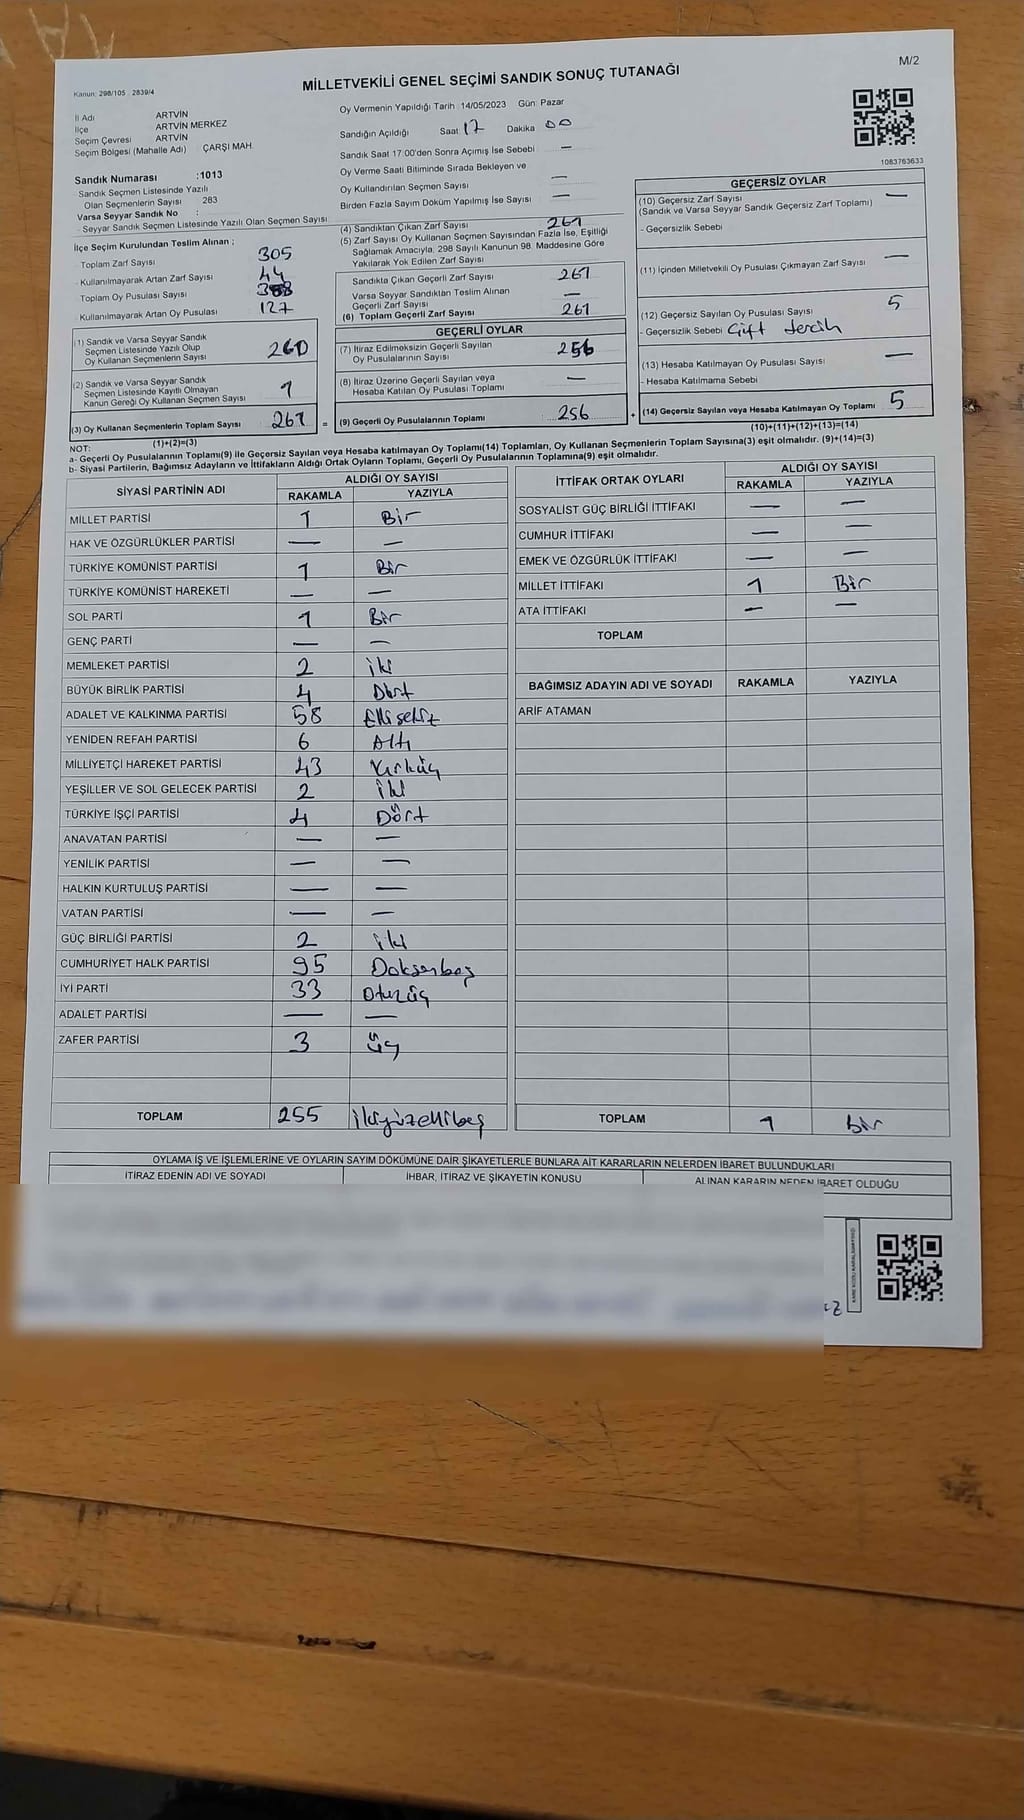 M/2
Kanun: 298/105 2839/4
MİLLETVEKİLİ GENEL SEÇİMİ SANDIK SONUÇ TUTANAĞI
İl Adı ARTVİN
İlçe ARTVİN MERKEZ
Seçim Çevresi ARTVİN
Seçim Bölgesi (Mahalle Adı) ÇARŞI MAH.
Sandık Numarası :1013
Sandık Seçmen Listesinde Yazılı
Olan Seçmenlerin Sayısı 283
Varsa Seyyar Sandık No :
- Seyyar Sandık Seçmen Listesinde Yazılı Olan Seçmen Sayısı
İlçe Seçim Kurulundan Teslim Alınan ;
- Toplam Zarf Sayısı 305
- Kullanılmayarak Artan Zarf Sayısı 44
Toplam Oy Pusulası Sayısı
- Kullanılmayarak Artan Oy Pusulası 127
(1) Sandık ve Varsa Seyyar Sandık
Seçmen Listesinde Yazılı Olup
Oy Kullanan Seçmenlerin Sayısı 260
(2) Sandık ve Varsa Seyyar Sandık
Seçmen Listesinde Kayıtlı Olmayan
Kanun Gereği Oy Kullanan Seçmen Sayısı 1
(3) Oy Kullanan Seçmenlerin Toplam Sayısı 261 =
(1)+(2)=(3)
Oy Vermenin Yapıldığı Tarih :14/05/2023 Gün: Pazar
Sandığın Açıldığı Saat 17 Dakika 00
Sandık Saat 17:00'den Sonra Açımış İse Sebebi —
Oy Verme Saati Bitiminde Sırada Bekleyen ve
Oy Kullandırılan Seçmen Sayısı —
Birden Fazla Sayım Döküm Yapılmış İse Sayısı —
(4) Sandıktan Çıkan Zarf Sayısı 261
(5) Zarf Sayısı Oy Kullanan Seçmen Sayısından Fazla İse, Eşitliği
Sağlamak Amacıyla, 298 Sayılı Kanunun 98. Maddesine Göre
Yakılarak Yok Edilen Zarf Sayısı
Sandıkta Çıkan Geçerli Zarf Sayısı 261
Varsa Seyyar Sandıktan Teslim Alınan
Geçerli Zarf Sayısı —
(6) Toplam Geçerli Zarf Sayısı 261
GEÇERLİ OYLAR
(7) İtiraz Edilmeksizin Geçerli Sayılan
Oy Pusulalarının Sayısı 256
(8) İtiraz Üzerine Geçerli Sayılan veya
Hesaba Katılan Oy Pusulası Toplamı —
(9) Geçerli Oy Pusulalarının Toplamı 256 +
1083763633
GEÇERSİZ OYLAR
(10) Geçersiz Zarf Sayısı —
(Sandık ve Varsa Seyyar Sandık Geçersiz Zarf Toplamı)
- Geçersizlik Sebebi
(11) İçinden Milletvekili Oy Pusulası Çıkmayan Zarf Sayısı —
(12) Geçersiz Sayılan Oy Pusulası Sayısı 5
- Geçersizlik Sebebi Çift tercih
(13) Hesaba Katılmayan Oy Pusulası Sayısı —
- Hesaba Katılmama Sebebi
(14) Geçersiz Sayılan veya Hesaba Katılmayan Oy Toplamı 5
(10)+(11)+(12)+(13)=(14)
NOT:
a- Geçerli Oy Pusulalarının Toplamı(9) ile Geçersiz Sayılan veya Hesaba katılmayan Oy Toplamı(14) Toplamları, Oy Kullanan Seçmenlerin Toplam Sayısına(3) eşit olmalıdır. (9)+(14)=(3)
b- Siyasi Partilerin, Bağımsız Adayların ve İttifakların Aldığı Ortak Oyların Toplamı, Geçerli Oy Pusulalarının Toplamına(9) eşit olmalıdır.
SİYASİ PARTİNİN ADI ALDIĞI OY SAYISI
RAKAMLA YAZIYLA
MİLLET PARTİSİ 1 Bir
HAK VE ÖZGÜRLÜKLER PARTİSİ — —
TÜRKİYE KOMÜNİST PARTİSİ 1 Bir
TÜRKİYE KOMÜNİST HAREKETİ — —
SOL PARTİ 1 Bir
GENÇ PARTİ — —
MEMLEKET PARTİSİ 2 iki
BÜYÜK BİRLİK PARTİSİ 4 Dört
ADALET VE KALKINMA PARTİSİ 58 Ellisekiz
YENİDEN REFAH PARTİSİ 6 Altı
MİLLİYETÇİ HAREKET PARTİSİ 43 Kırküç
YEŞİLLER VE SOL GELECEK PARTİSİ 2 İki
TÜRKİYE İŞÇİ PARTİSİ 4 Dört
ANAVATAN PARTİSİ — —
YENİLİK PARTİSİ — —
HALKIN KURTULUŞ PARTİSİ — —
VATAN PARTİSİ — —
GÜÇ BİRLİĞİ PARTİSİ 2 iki
CUMHURİYET HALK PARTİSİ 95 Doksanbeş
İYİ PARTİ 33 Otuzüç
ADALET PARTİSİ — —
ZAFER PARTİSİ 3 üç
TOPLAM 255 ikiyüzellibeş
İTTİFAK ORTAK OYLARI ALDIĞI OY SAYISI
RAKAMLA YAZIYLA
SOSYALİST GÜÇ BİRLİĞİ İTTİFAKI — —
CUMHUR İTTİFAKI — —
EMEK VE ÖZGÜRLÜK İTTİFAKI — —
MİLLET İTTİFAKI 1 Bir
ATA İTTİFAKI — —
TOPLAM
BAĞIMSIZ ADAYIN ADI VE SOYADI RAKAMLA YAZIYLA
ARİF ATAMAN
TOPLAM 1 Bir
OYLAMA İŞ VE İŞLEMLERİNE VE OYLARIN SAYIM DÖKÜMÜNE DAİR ŞİKAYETLERLE BUNLARA AİT KARARLARIN NELERDEN İBARET BULUNDUKLARI
İTİRAZ EDENİN ADI VE SOYADI İHBAR, İTİRAZ VE ŞİKAYETİN KONUSU ALINAN KARARIN NEDEN İBARET OLDUĞU